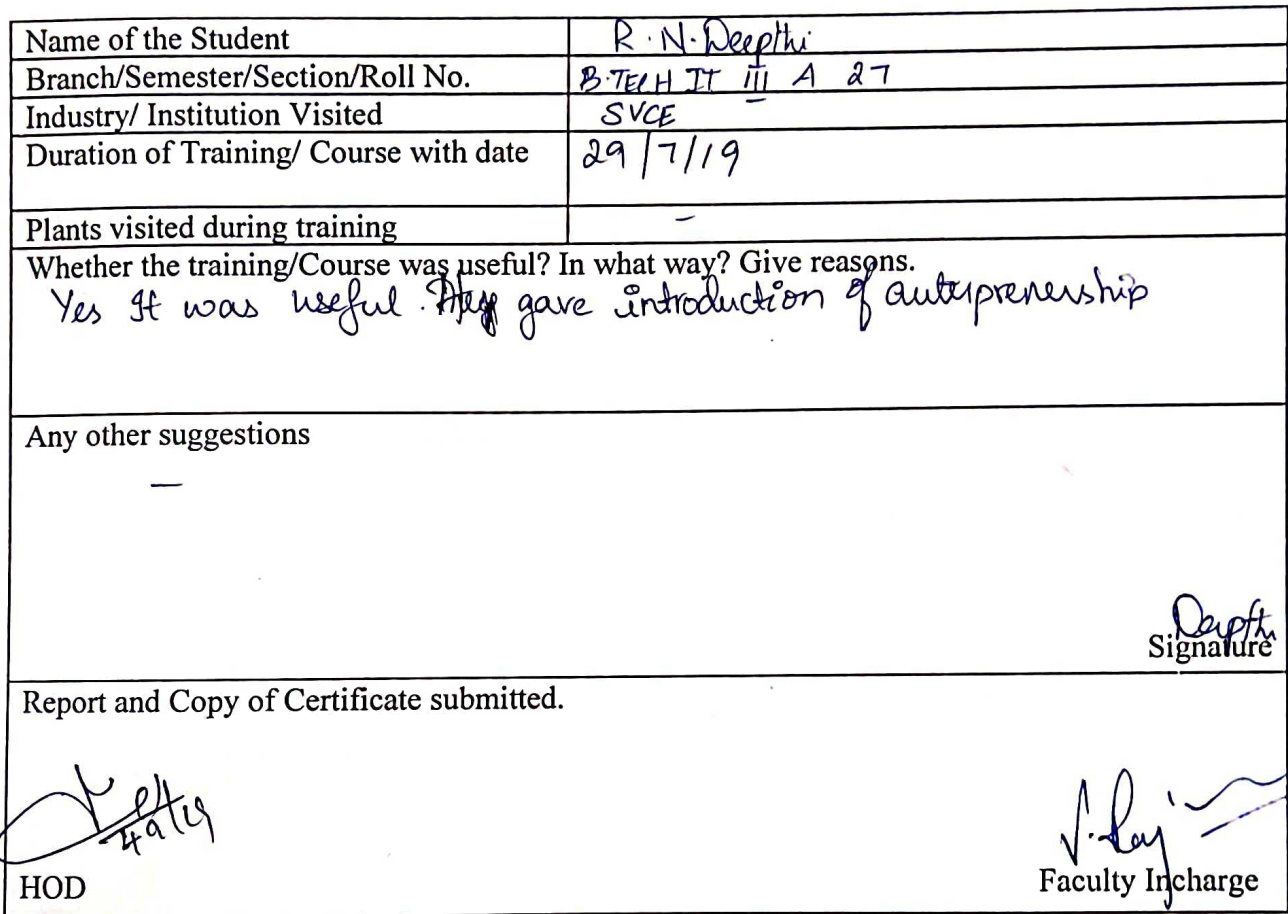 Name of the Student R.N.Deepthi
Branch/Semester/Section/Roll No. B.TECH IT III A 27
Industry/ Institution Visited SVCE
Duration of Training/ Course with date 29/7/19
Plants visited during training -
Whether the training/Course was useful? In what way? Give reasons.
Yes It was useful. They gave introduction of auterprenership
Any other suggestions
-
Deepthi
Signature
Report and Copy of Certificate submitted.
HOD
Faculty Incharge